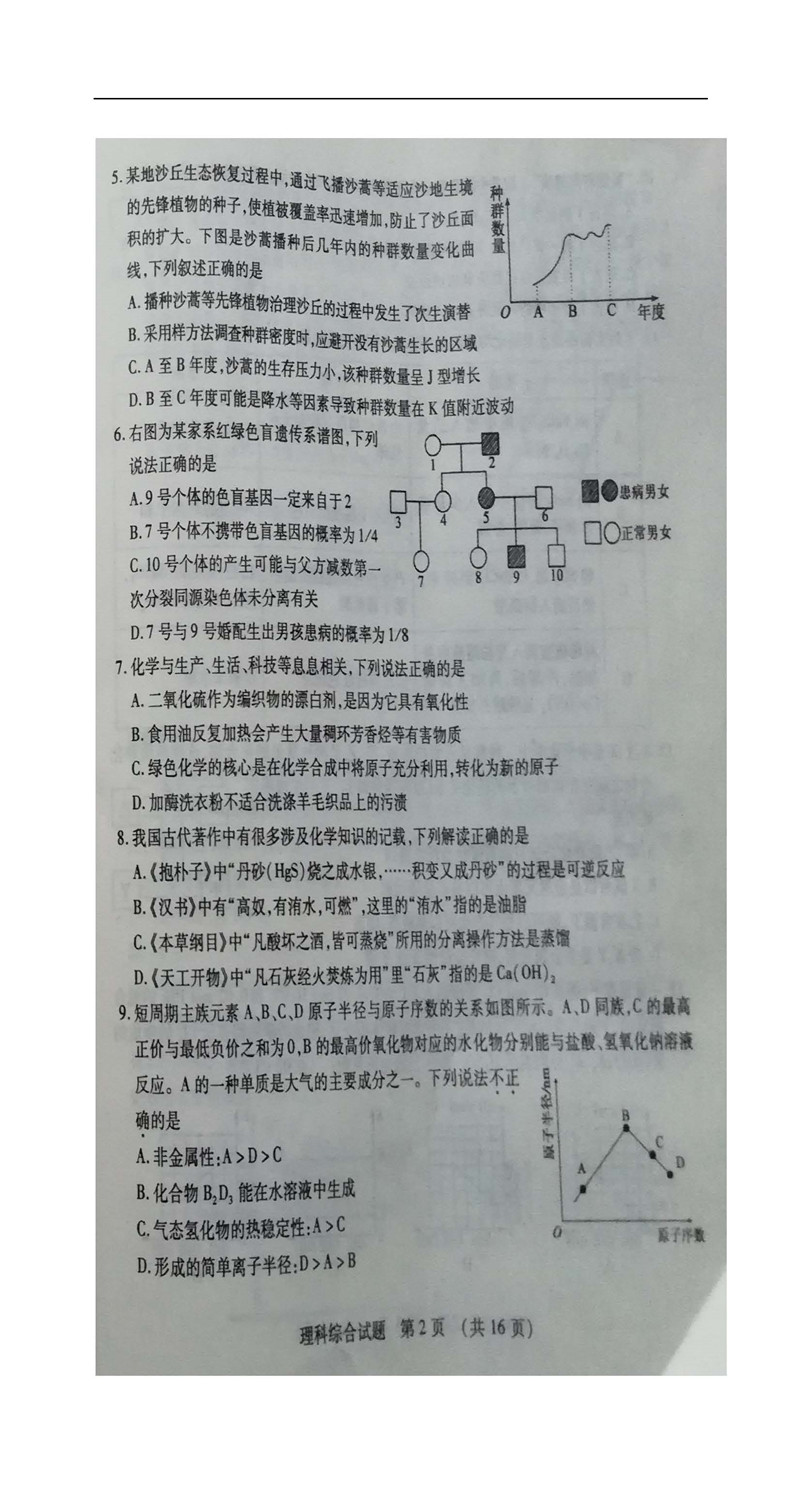 5.某地沙丘生态恢复过程中,通过飞播沙蒿等适应沙地生境
的先锋植物的种子,使植被覆盖率迅速增加,防止了沙丘面
积的扩大。下图是沙蒿播种后几年内的种群数量变化曲
线,下列叙述正确的是
种群数量
O A B C 年度
A.播种沙蒿等先锋植物治理沙丘的过程中发生了次生演替
B.采用样方法调查种群密度时,应避开没有沙蒿生长的区域
C.A至B年度,沙蒿的生存压力小,该种群数量呈J型增长
D.B至C年度可能是降水等因素导致种群数量在K值附近波动
6.右图为某家系红绿色盲遗传系谱图,下列
说法正确的是
A.9号个体的色盲基因一定来自于2
B.7号个体不携带色盲基因的概率为1/4
C.10号个体的产生可能与父方减数第一
次分裂同源染色体未分离有关
D.7号与9号婚配生出男孩患病的概率为1/8
1 2
3 4 5 6
7 8 9 10
患病男女
正常男女
7.化学与生产、生活、科技等息息相关,下列说法正确的是
A.二氧化硫作为编织物的漂白剂,是因为它具有氧化性
B.食用油反复加热会产生大量稠环芳香烃等有害物质
C.绿色化学的核心是在化学合成中将原子充分利用,转化为新的原子
D.加酶洗衣粉不适合洗涤羊毛织品上的污渍
8.我国古代著作中有很多涉及化学知识的记载,下列解读正确的是
A.《抱朴子》中“丹砂(HgS)烧之成水银,……积变又成丹砂”的过程是可逆反应
B.《汉书》中有“高奴,有洧水,可燃”,这里的“洧水”指的是油脂
C.《本草纲目》中“凡酸坏之酒,皆可蒸烧”所用的分离操作方法是蒸馏
D.《天工开物》中“凡石灰经火焚炼为用”里“石灰”指的是Ca(OH)₂
9.短周期主族元素A、B、C、D原子半径与原子序数的关系如图所示。A、D同族,C的最高
正价与最低负价之和为0,B的最高价氧化物对应的水化物分别能与盐酸、氢氧化钠溶液
反应。A的一种单质是大气的主要成分之一。下列说法不正
确的是
A.非金属性:A>D>C
B.化合物B₂D₃能在水溶液中生成
C.气态氢化物的热稳定性:A>C
D.形成的简单离子半径:D>A>B
原子半径/nm
A B C D
O 原子序数
理科综合试题 第2页 (共16页)